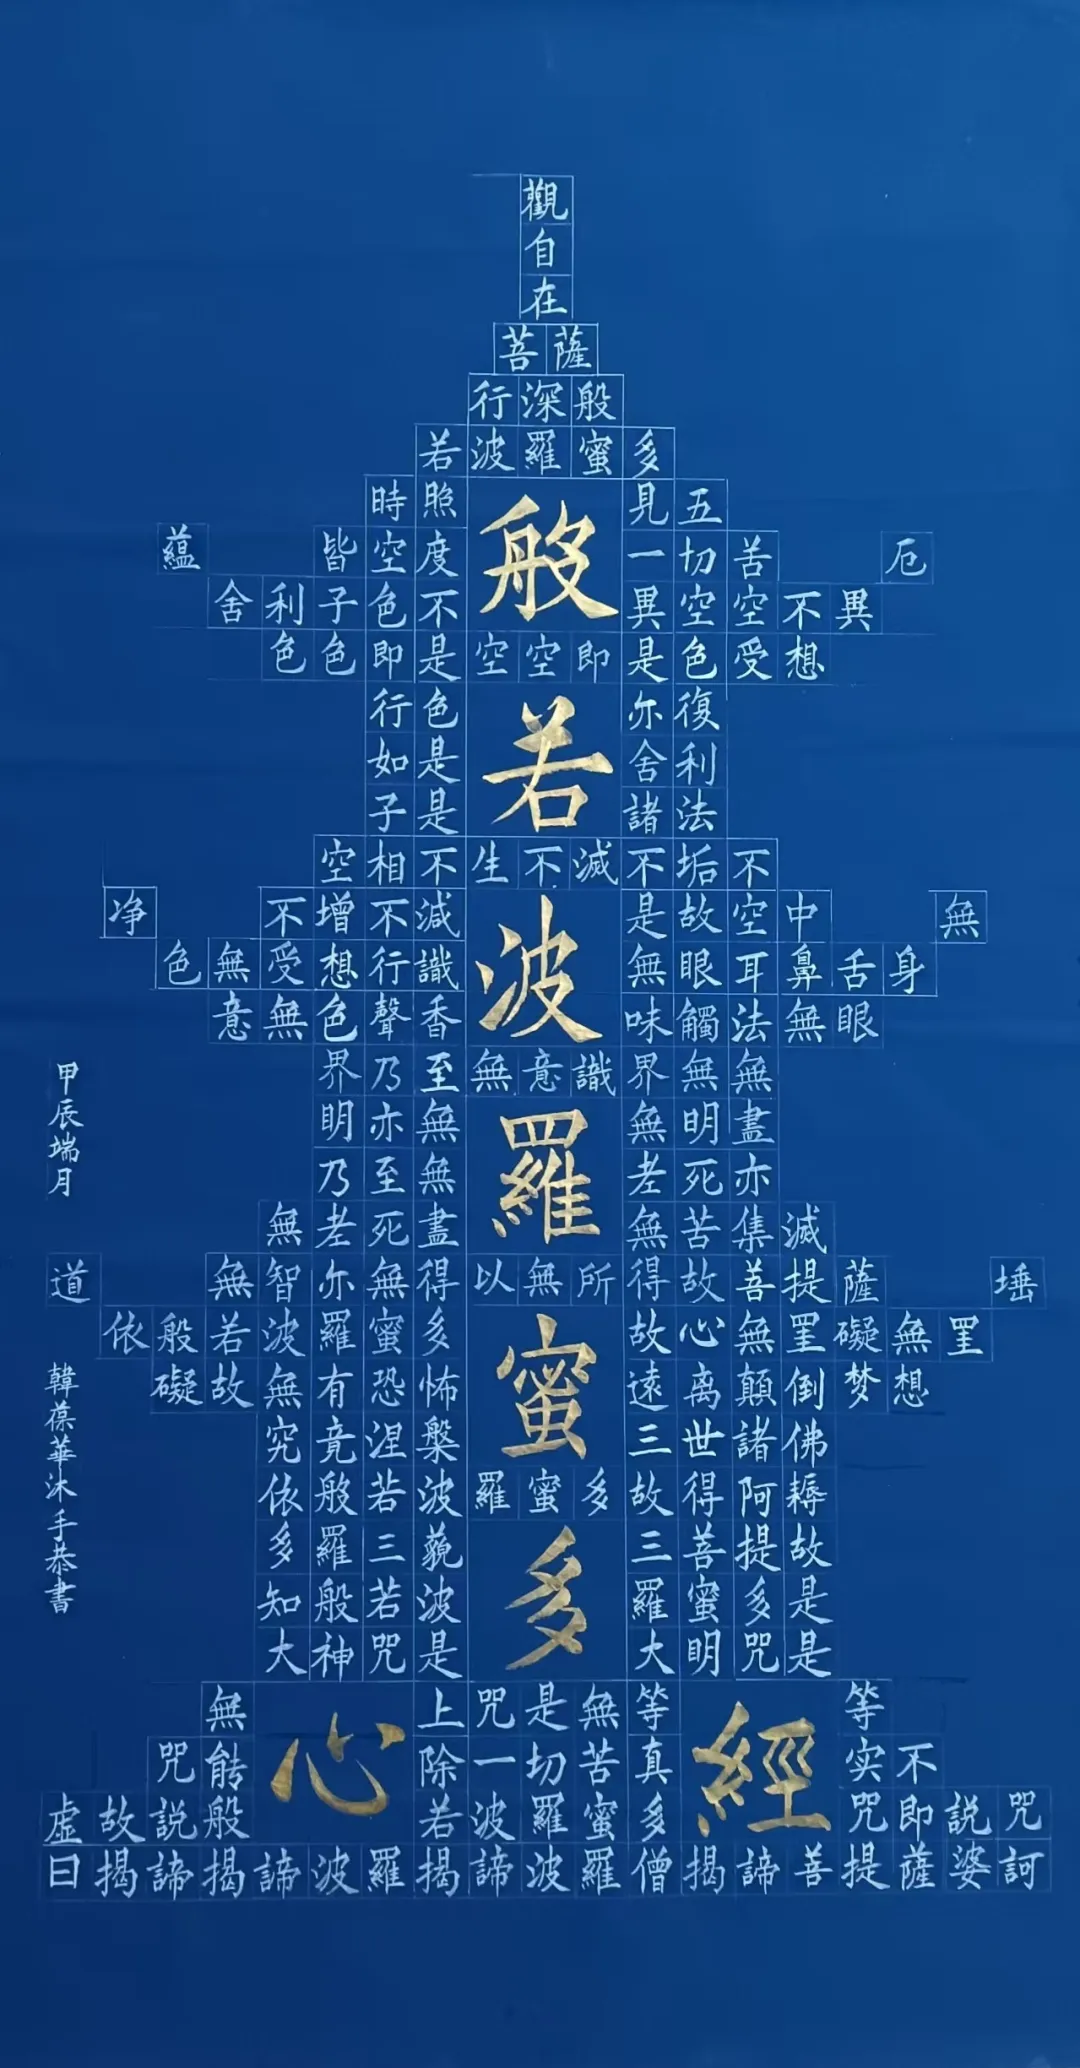 觀
自
在
菩薩
行深般
若波羅蜜多
時照見五
蘊皆空度一切苦厄
般
舍利子色不異空空不異
色色即是空空即是色受想
行色亦復
如是舍利
若
子是諸法
空相不生不滅不垢不
净不增不減是故空中無
色無受想行識無眼耳鼻舌身
波
意無色聲香味觸法無眼
界乃至無意識界無無
明亦無無明盡
乃至無老死亦
羅
無老死盡無苦集滅
道無智亦無得以無所得故菩提薩埵
依般若波羅蜜多故心無罣礙無罣
蜜
礙故無有恐怖遠离顛倒梦想
究竟涅槃三世諸佛
依般若波羅蜜多故得阿耨
多羅三藐三菩提故
多
知般若波羅蜜多是
大神咒是大明咒是
無上咒是無等等
心經
咒能除一切苦真实不
虛故說般若波羅蜜多咒即說咒
曰揭諦揭諦波羅揭諦波羅僧揭諦菩提薩婆訶
甲辰端月
韓葆華沐手恭書